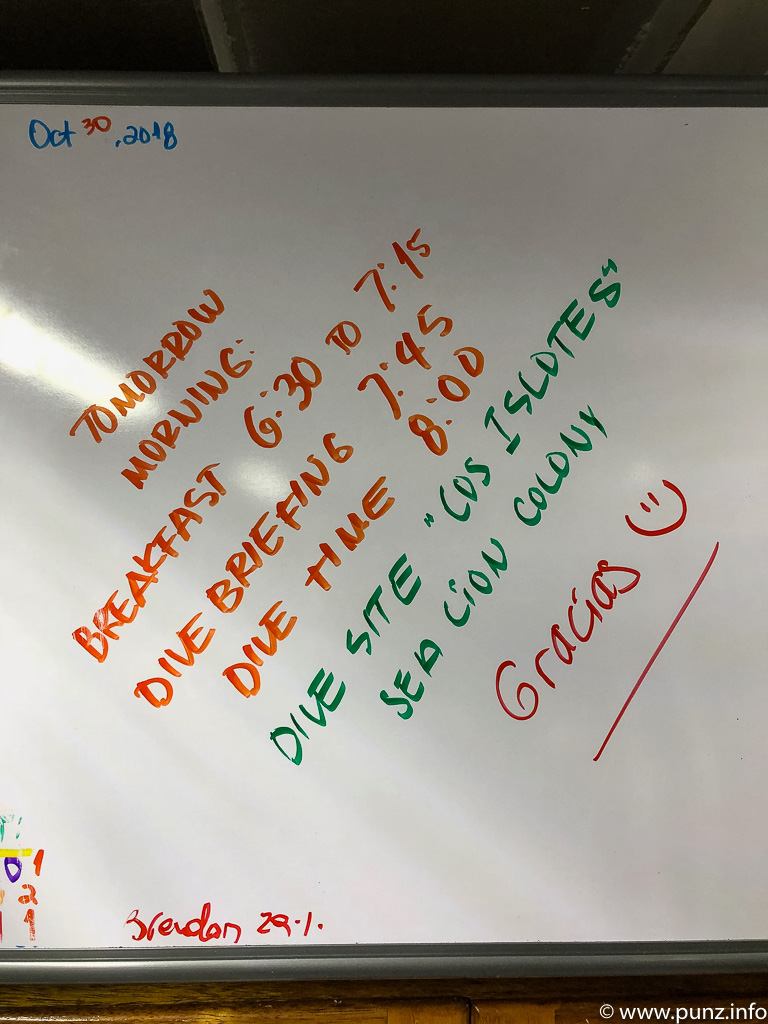 Oct 30, 2018
TOMORROW
MORNING:
BREAKFAST 6:30 TO 7:15
DIVE BRIEFING 7:45
DIVE TIME 8:00
DIVE SITE "LOS ISLOTES"
SEA LION COLONY
Gracias
0 1
2
1
Brendan 29.1.
© www.punz.info